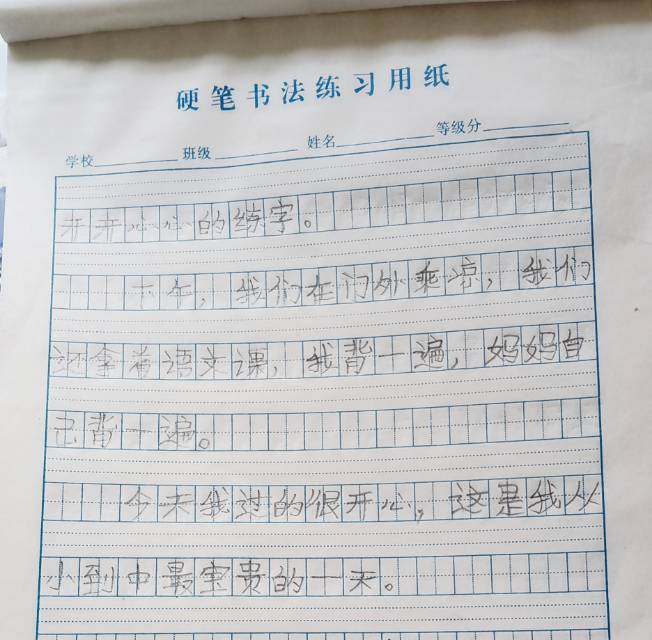 硬笔书法练习用纸
学校 班级 姓名 等级分
开开心心的练字。
下午，我们在门外乘凉，我们
还拿着语文课，我背一遍，妈妈自
己背一遍。
今天我过的很开心，这是我从
小到中最宝贵的一天。